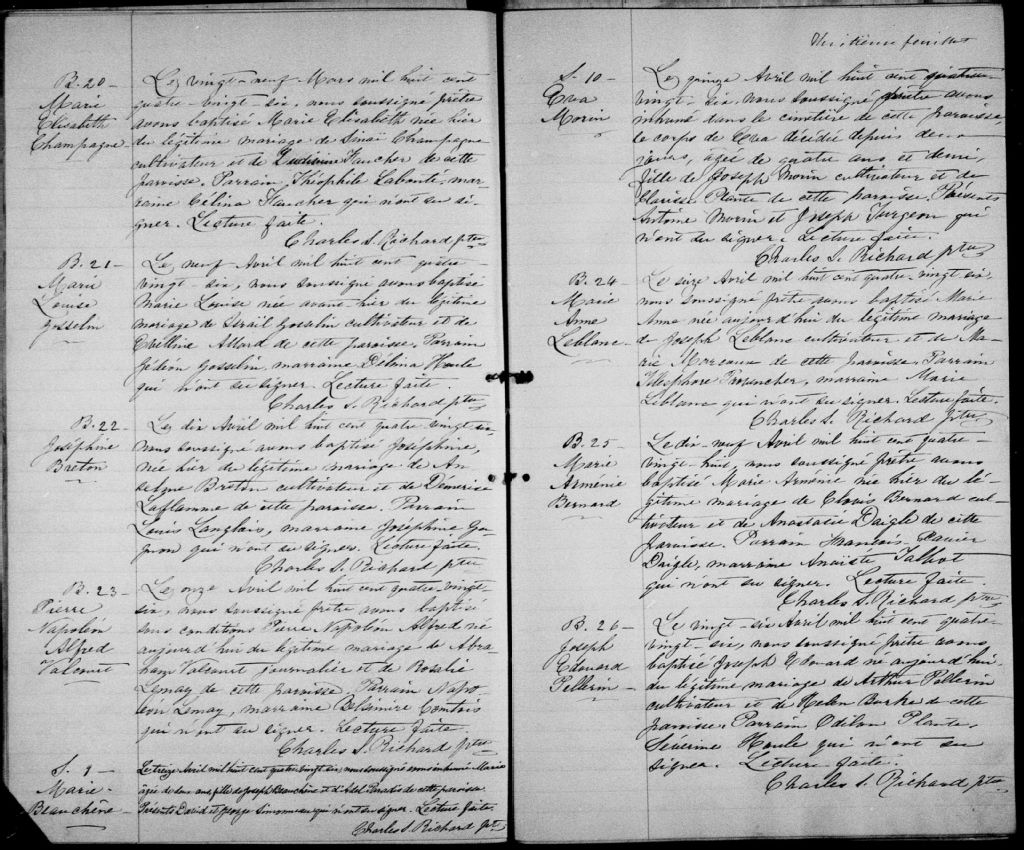 B. 20 —
Marie
Elisabeth
Champagne
Le vingt-neuf Mars mil huit cent
quatre-vingt-six, nous soussigné prêtre
avons baptisé Marie Elisabeth née hier
du légitime mariage de Sinaï Champagne
cultivateur et de Faucher de cette
paroisse. Parrain, Théophile Labonté, mar-
raine Célina Faucher qui n'ont su si-
gner. Lecture faite.
Charles S. Richard ptre
B. 21 —
Marie
Louise
Gosselin
Le neuf Avril mil huit cent quatre-
vingt-six, nous soussigné avons baptisé
Marie Louise née avant-hier du légitime
mariage de Israïl Gosselin cultivateur et de
Allard de cette paroisse. Parrain
Gédéon Gosselin, marraine Délina Houle
qui n'ont su signer. Lecture faite.
Charles S. Richard ptre
B. 22 —
Joséphine
Breton
Le dix Avril mil huit cent quatre vingt-six
nous soussigné avons baptisé Joséphine,
née hier du légitime mariage de An-
selme Breton cultivateur et de Démerise
Laflamme de cette paroisse. Parrain
Louis Langlais, marraine Joséphine Ga-
gnon qui n'ont su signer. Lecture faite
Charles S. Richard ptre
B. 23 —
Pierre
Napoléon
Alfred
Valcourt
Le onze Avril mil huit cent quatre-vingt-
six, nous soussigné prêtre avons baptisé
sous conditions Pierre Napoléon Alfred né
aujourd'hui du légitime mariage de Abra-
ham Valcourt journalier et de Rosalie
Lemay de cette paroisse, Parrain Napo-
léon Lemay, marraine
qui n'ont su signer. Lecture faite.
Charles S. Richard ptre
S. 9 —
Marie
Blanchène —
Le treize Avril mil huit cent quatre vingt six, nous soussigné avons inhumé Marie
âgée de deux ans fille de Joseph et de de cette paroisse
Présents David et George Simonneau qui n'ont su signer. Lecture faite.
Charles S. Richard ptre
feuillet
S. 10 —
Eva
Morin
Le quinze Avril mil huit cent quatre-
vingt-six, nous soussigné prêtre avons
inhumé dans le cimetière de cette paroisse,
le corps de Eva décédée depuis deux
jours, âgée de quatre ans et demi,
fille de Joseph Morin cultivateur et de
Clarisse Plante de cette paroisse. Présents
Antoine Morin et Joseph Turgeon qui
n'ont su signer. Lecture faite.
Charles S. Richard ptre
B. 24 —
Marie
Anne
Leblanc —
Le seize Avril mil huit cent quatre-vingt six,
nous soussigné prêtre avons baptisé Marie
Anne née aujourd'hui du légitime mariage
de Joseph Leblanc cultivateur et de Ma-
rie Moreau de cette paroisse. Parrain
Télesphore, marraine Marie
Leblanc qui n'ont su signer. Lecture faite.
Charles S. Richard ptre
B. 25 —
Marie
Arménie
Bernard
Le dix-neuf Avril mil huit cent quatre-
vingt-huit, nous soussigné prêtre avons
baptisé Marie Arménie née hier du lé-
gitime mariage de Clovis Bernard cul-
tivateur et de Anastasie Daigle de cette
paroisse. Parrain François-Xavier
Daigle, marraine Talbot
qui n'ont su signer. Lecture faite.
Charles S. Richard ptre
B. 26 —
Joseph
Edouard
Pellerin —
Le vingt-six Avril mil huit cent quatre-
vingt-six, nous soussigné prêtre avons
baptisé Joseph Edouard né aujourd'hui
du légitime mariage de Arthur Pellerin
cultivateur et de Helen Burke de cette
paroisse. Parrain Odilon Plante.
Séverine Houle qui n'ont su
signer. Lecture faite.
Charles S. Richard ptre